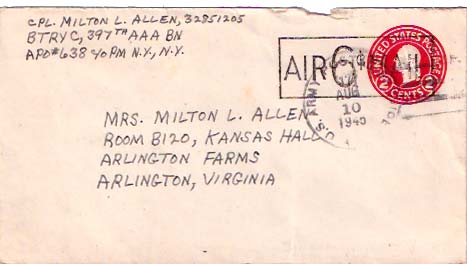 CPL. MILTON L. ALLEN, 32851205
BTRY C, 397TH AAA BN
APO#638 c/o PM N.Y., N.Y.
UNITED STATES POSTAGE
2 CENTS 2
AIR 6¢ MAIL
U.S. ARMY
AUG
10
1945
MRS. MILTON L. ALLEN
ROOM B120, KANSAS HALL
ARLINGTON FARMS
ARLINGTON, VIRGINIA